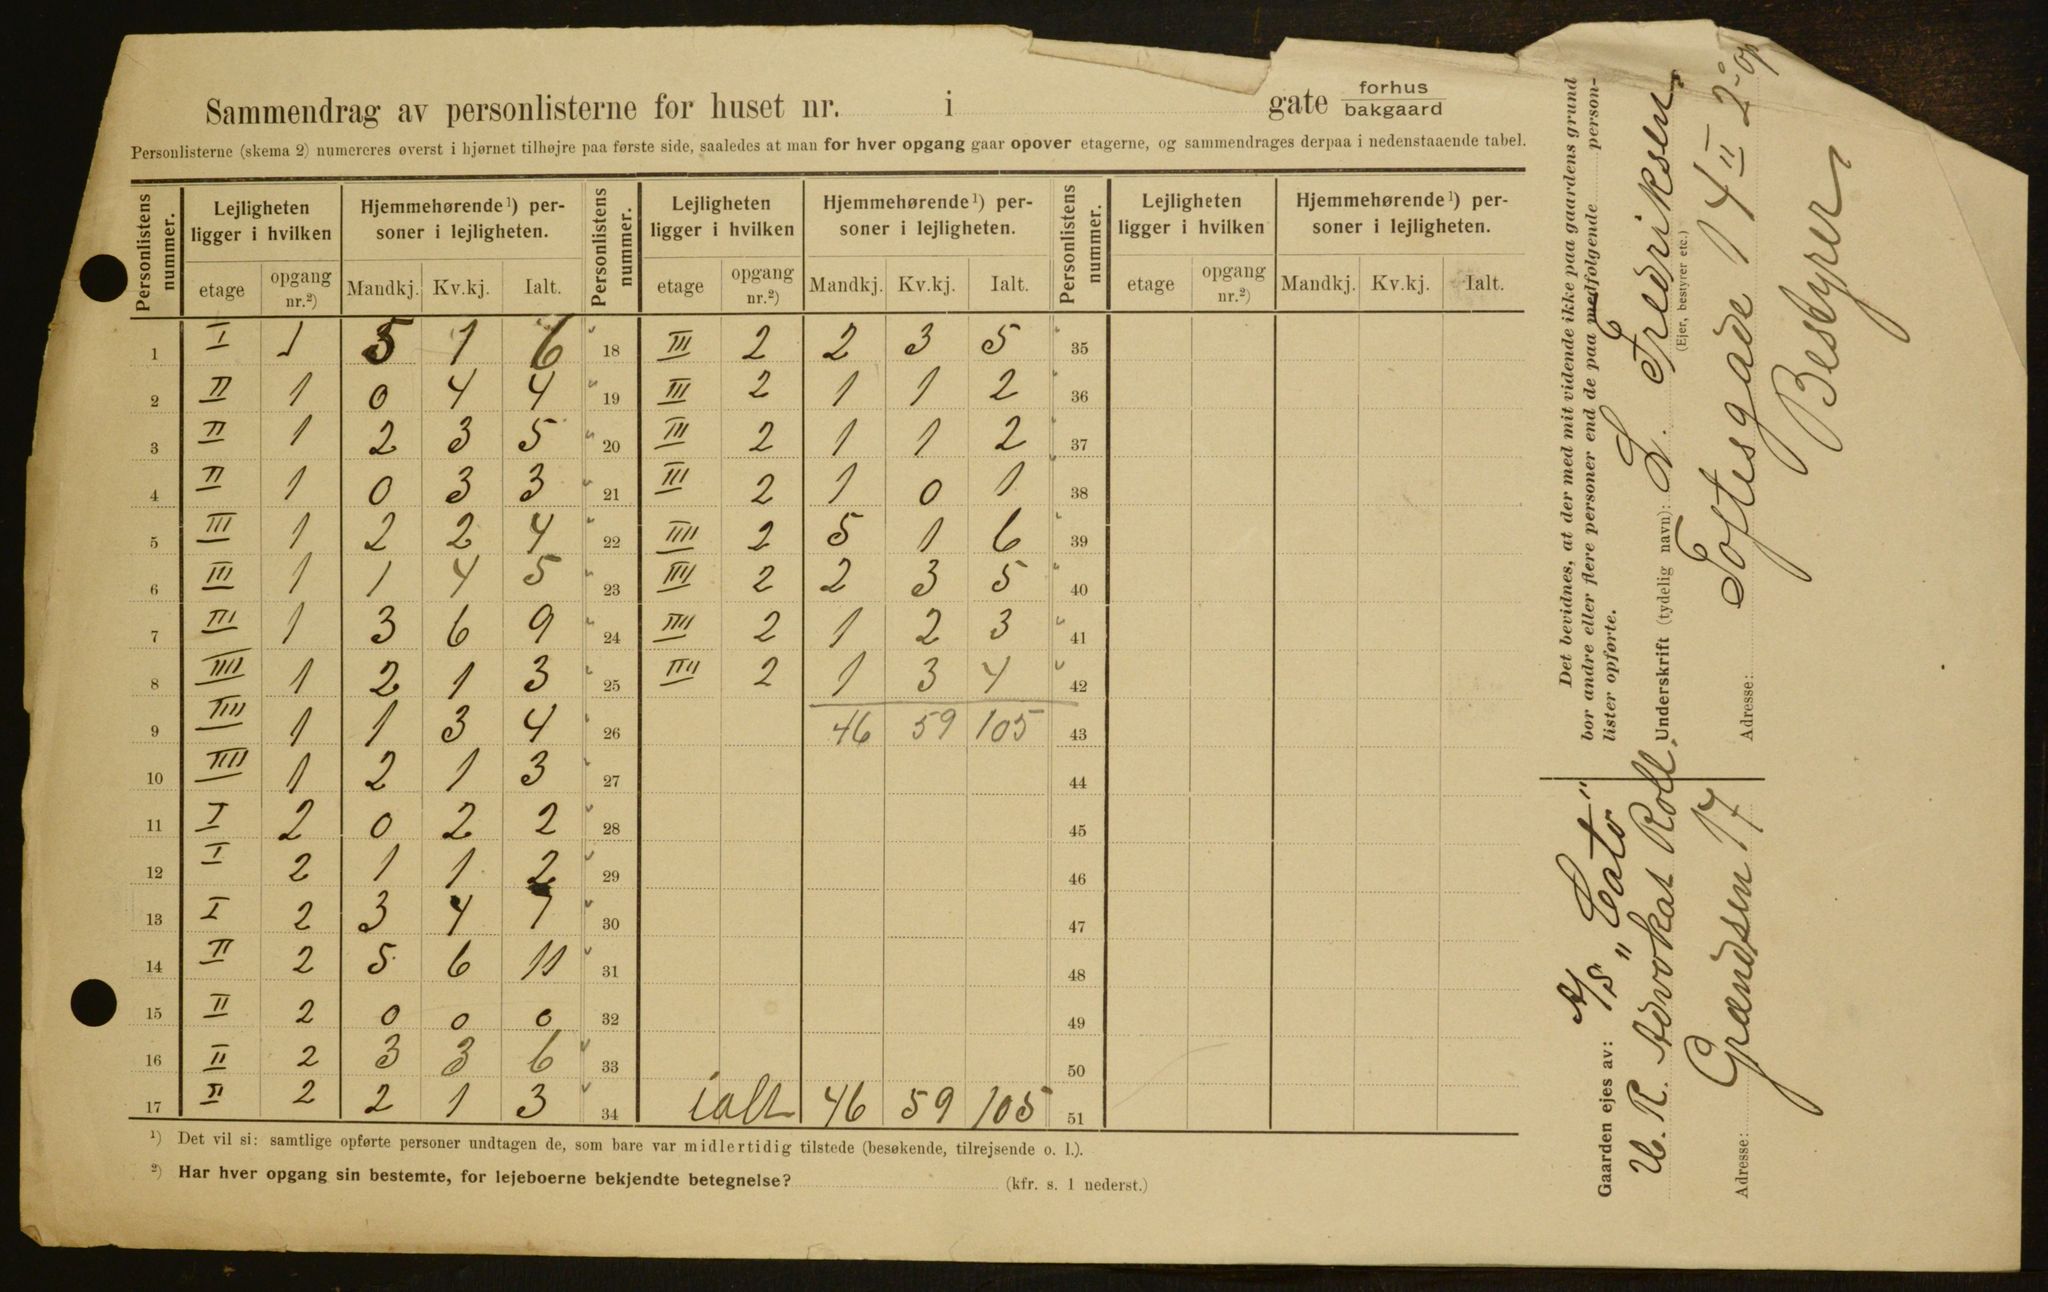 Sammendrag av personlisterne for huset nr. i gate forhus bakgaard
Personlisterne (skema 2) numereres øverst i hjørnet tilhøjre paa første side, saaledes at man for hver opgang gaar opover etagerne, og sammendrages derpaa i nedenstaaende tabel.
Personlistens nummer. Lejligheten ligger i hvilken Hjemmehørende 1) personer i lejligheten. Personlistens nummer. Lejligheten ligger i hvilken Hjemmehørende 1) personer i lejligheten. Personlistens nummer. Lejligheten ligger i hvilken Hjemmehørende 1) personer i lejligheten.
etage opgang nr.2) Mandkj. Kv.kj. Ialt. etage opgang nr.2) Mandkj. Kv.kj. Ialt. etage opgang nr.2) Mandkj. Kv.kj. Ialt.
1 I 1 5 1 6 18 III 2 2 3 5 35
2 II 1 0 4 4 19 III 2 1 1 2 36
3 II 1 2 3 5 20 III 2 1 1 2 37
4 II 1 0 3 3 21 III 2 1 0 1 38
5 III 1 2 2 4 22 IIII 2 5 1 6 39
6 III 1 1 4 5 23 IIII 2 2 3 5 40
7 III 1 3 6 9 24 IIII 2 1 2 3 41
8 IIII 1 2 1 3 25 IIII 2 1 3 4 42
9 IIII 1 1 3 4 26 46 59 105 43
10 IIII 1 2 1 3 27 44
11 I 2 0 2 2 28 45
12 I 2 1 1 2 29 46
13 I 2 3 4 7 30 47
14 II 2 5 6 11 31 48
15 II 2 0 0 0 32 49
16 II 2 3 3 6 33 50
17 II 2 2 1 3 34 ialt 46 59 105 51
1) Det vil si: samtlige opførte personer undtagen de, som bare var midlertidig tilstede (besøkende, tilrejsende o. l.).
2) Har hver opgang sin bestemte, for lejeboerne bekjendte betegnelse? (kfr. s. 1 nederst.)
Det bevidnes, at der med mit vidende ikke paa gaardens grund
bor andre eller flere personer end de paa medfølgende person-
lister opførte.
Underskrift (tydelig navn): L. Fredriksen.
(Ejer, bestyrer etc.)
Adresse: Toftesgade 14 II 2 op
Bestyrer
Gaarden ejes av: A/S "Cato"
Advokat Roll.
Adresse: Grændsen 17